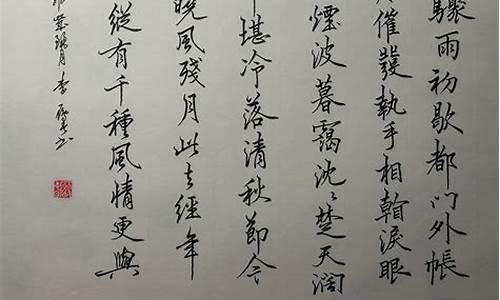 驟雨初歇都門外帳
催發執手相看淚眼
煙波暮靄沈〻楚天闊
堪冷落清秋節今
曉風殘月此去經年
縱有千種風情更與
月李